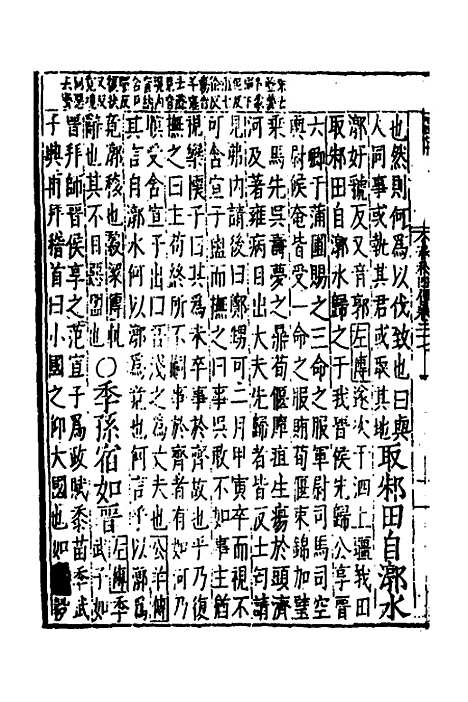 也然則何為以伐致也曰與
人同事或執其君或取其地
取邾田自漷水
漷好虢反又音郭左傳遂次于泗上疆我田
取邾田自漷水歸之于我晉侯先歸公享晉
六卿于蒲圃賜之三命之服軍尉司馬司空
輿尉候奄皆受一命之服賄荀偃束錦加璧
乘馬先吳壽夢之鼎荀偃癉疽生瘍於頭濟
河及著雍病目出大夫先歸者皆反士匄請
見弗內請後曰鄭甥可二月甲寅卒而視不
可含宣子盥而撫之曰事吳敢不如事主猶
視欒懷子曰其為未卒事於齊故也乎乃復
撫之曰主苟終所不嗣事於齊者有如河乃
瞑受含宣子出曰吾淺之為丈夫也公羊傳
其言自漷水何以漷為竟也何言乎以漷為
竟漷移也穀梁傳軋
辭也其不日惡盟也
○季孫宿如晉
左傳季
武子如
晉拜師晉侯享之范宣子為政賦黍苗季武
子興再拜稽首曰小國之仰大國也如